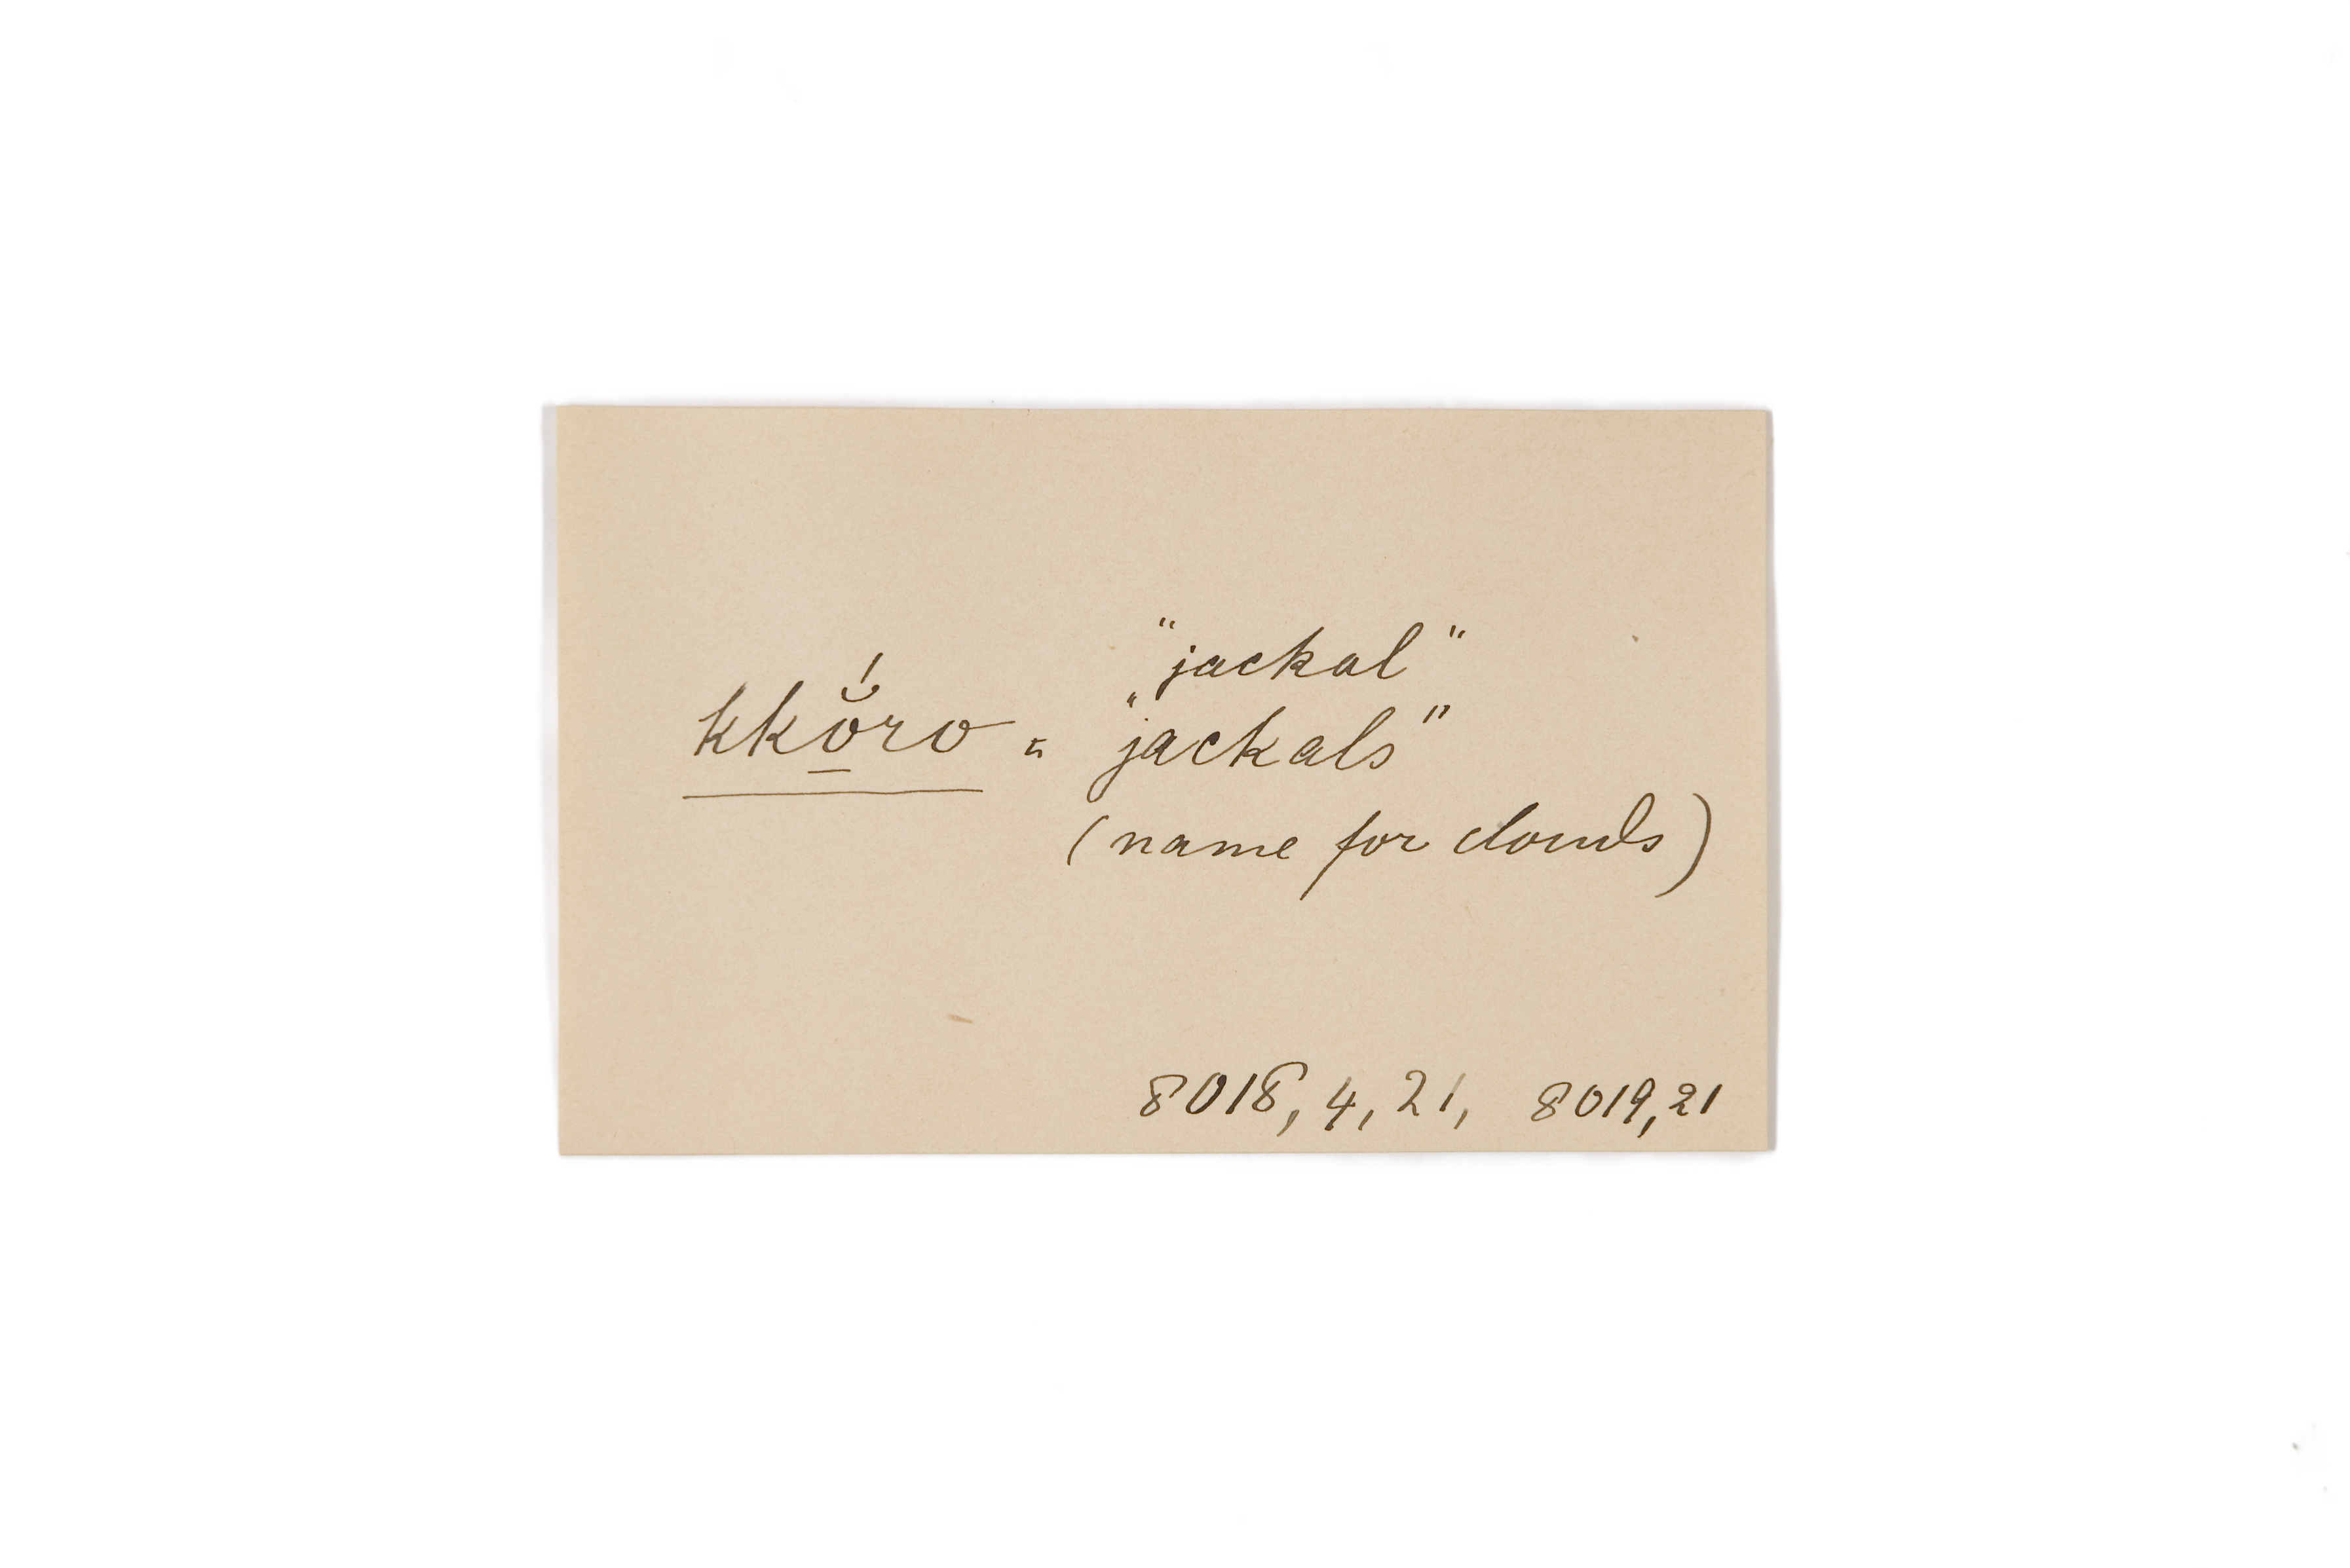 "jackal"
kkŏ̱́ro = "jackals"
(name for clouds)
8018, 4, 21, 8019, 21